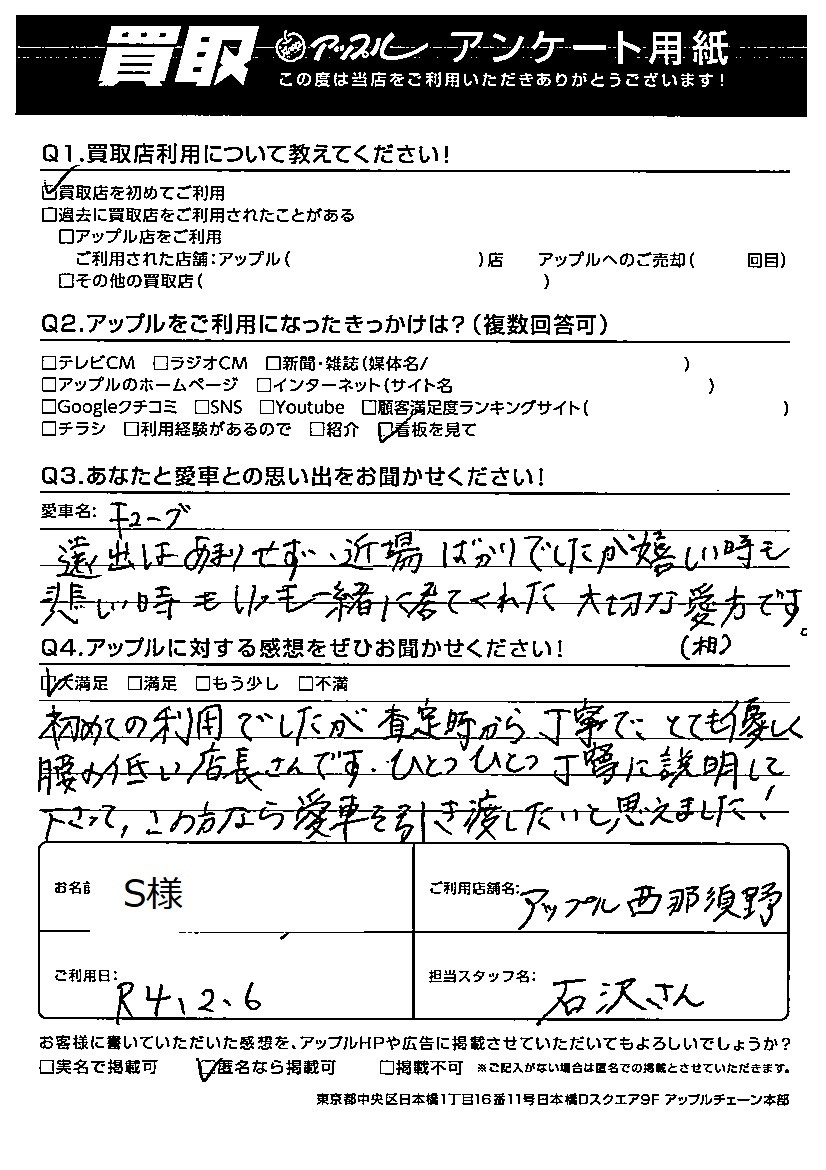 買取 アップル アンケート用紙
この度は当店をご利用いただきありがとうございます!
Q1.買取店利用について教えてください!
☑買取店を初めてご利用
□過去に買取店をご利用されたことがある
□アップル店をご利用
ご利用された店舗:アップル( )店 アップルへのご売却( 回目)
□その他の買取店( )
Q2.アップルをご利用になったきっかけは?(複数回答可)
□テレビCM □ラジオCM □新聞・雑誌(媒体名/ )
□アップルのホームページ □インターネット(サイト名 )
□Googleクチコミ □SNS □Youtube □顧客満足度ランキングサイト( )
□チラシ □利用経験があるので □紹介 ☑看板を見て
Q3.あなたと愛車との思い出をお聞かせください!
愛車名: キューブ
遠出はあまりせず、近場ばかりでしたが嬉しい時も
悲しい時もいつも一緒に居てくれた大切な愛方です。
(相)
Q4.アップルに対する感想をぜひお聞かせください!
☑大満足 □満足 □もう少し □不満
初めての利用でしたが査定時から丁寧で、とても優しく
腰の低い店長さんです。ひとつひとつ丁寧に説明して
下さって、この方なら愛車を引き渡したいと思えました!
お名前 S様
ご利用店舗名: アップル西那須野
ご利用日: R4、2、6
担当スタッフ名: 石沢さん
お客様に書いていただいた感想を、アップルHPや広告に掲載させていただいてもよろしいでしょうか?
□実名で掲載可 ☑匿名なら掲載可 □掲載不可 ※ご記入がない場合は匿名での掲載とさせていただきます。
東京都中央区日本橋1丁目16番11号日本橋Dスクエア9F アップルチェーン本部